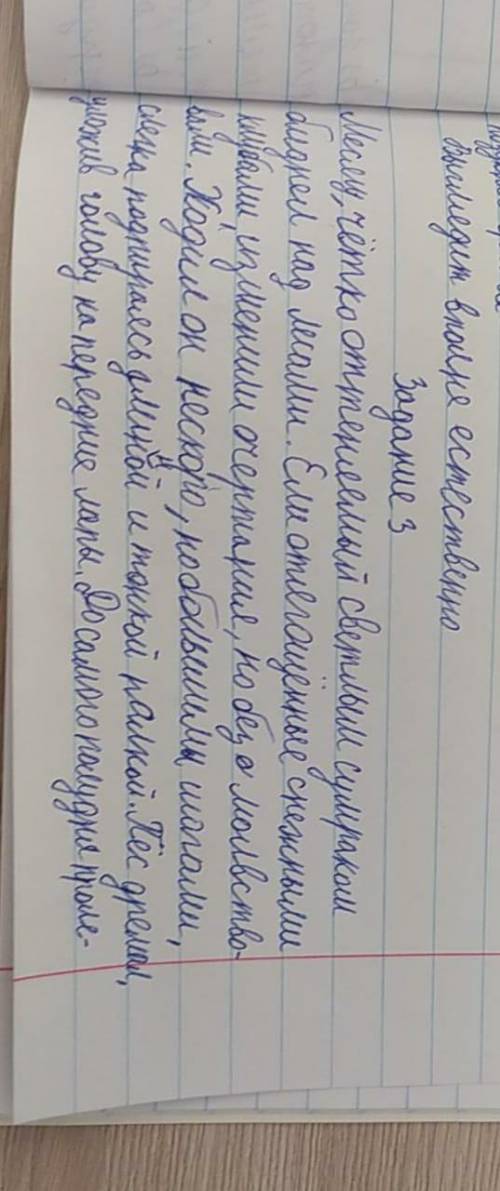 Выглядит вполне естественно
Задание 3
Месяц, чётко оттенённый светлым сумраком
бледнел над мхами. Ели отягощённые снежными
клубами, изменили очертания, но безмолвство-
вали. Ходил он нескоро, но большими шагами,
слегка подпираясь длинной и тонкой палкой. Пёс дремал,
уложив голову на передние лапы. До самого полудня проле-